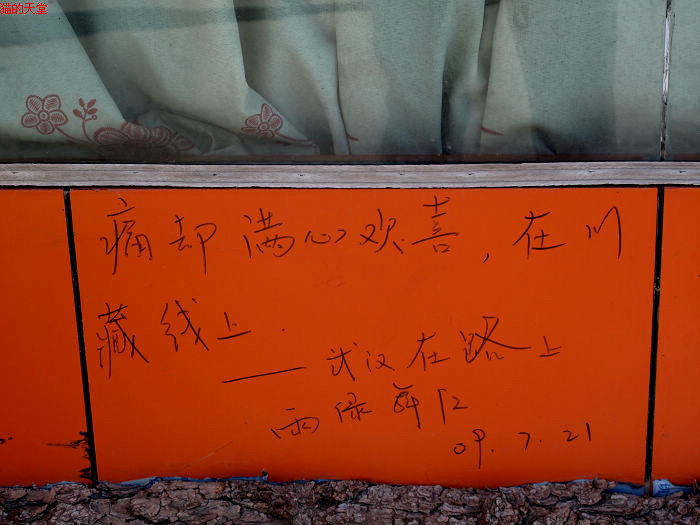 猫的天堂
痛却满心欢喜，在川
藏线上.
——武汉在路上
雨绿舞红
09.7.21